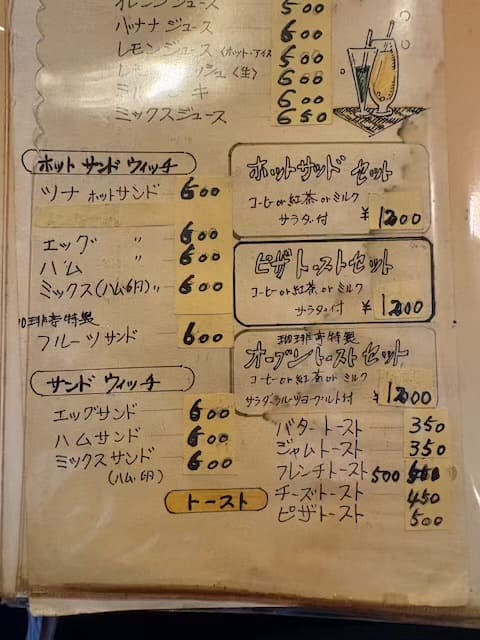 オレンジジュース 500
バナナジュース 600
レモンジュース〈ホット・アイス 500
〈生〉 600
ミル 600
ミックスジュース 650
ホット サンド ウィッチ
ツナ ホットサンド 600
エッグ 〃 600
ハム 〃 600
ミックス(ハム・卵)〃 600
珈琲亭特製
フルーツサンド 600
サンド ウィッチ
エッグサンド 600
ハムサンド 600
ミックスサンド 600
(ハム・卵)
ホットサンド セット
コーヒー or 紅茶 or ミルク
サラダ付 ¥1200
ピザトーストセット
コーヒー or 紅茶 or ミルク
サラダ付 ¥1200
珈琲亭特製
オーブントーストセット
コーヒー or 紅茶 or ミルク
サラダ・フルーツヨーグルト付 ¥1200
トースト
バタートースト 350
ジャムトースト 350
フレンチトースト 500
チーズトースト 450
ピザトースト 500